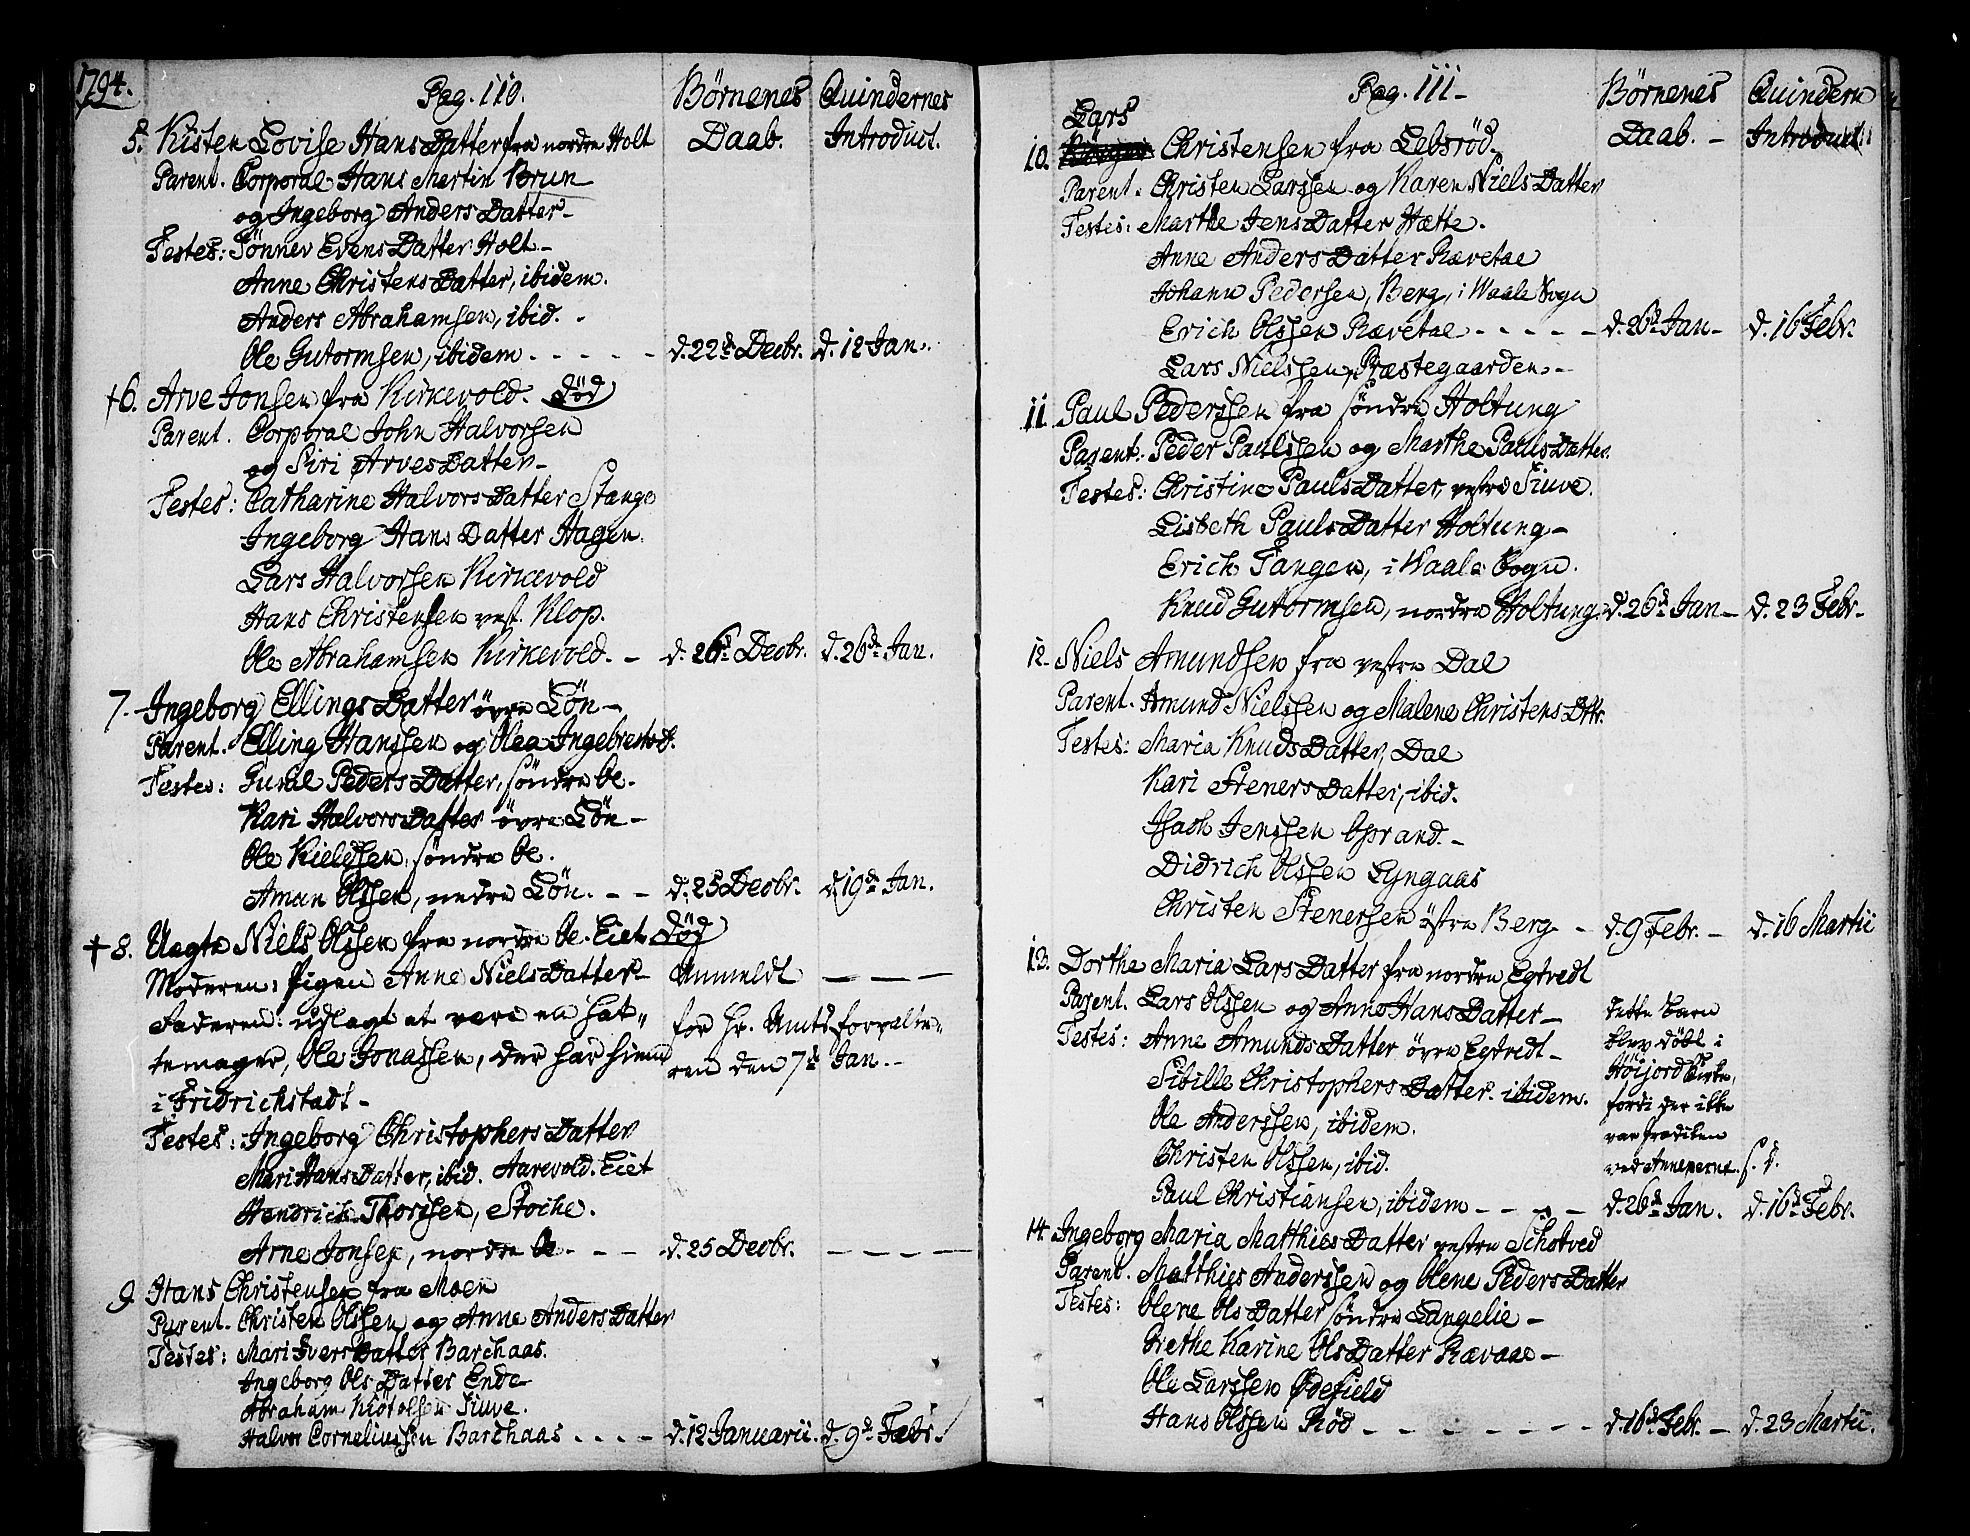 1794.
Pag. 110.
Börnenes Daab.
Quindernes Introduct.
5. Kisten Lovise HansDatter fra nordre Holt
Parent. Corporal Hans Martin Brun
og Ingeborg AndersDatter
Testes: Tönnev EvensDatter Holt
Anne ChristensDatter, ibidem.
Anders Abrahamsen, ibid.
Ole Gutormsen, ibidem - - - - d. 22d Decbr. d. 12 Jan.
†6. Arve Jonsen fra Kirkevold. död
Parent. Corporal John Halvorsen
og Siri ArvesDatter
Testes: Catharine HalvorsDatter Stange
Ingeborg HansDatter Hagen.
Lars Halvorsen Kirkevold
Hans Christensen vest. Klop.
Ole Abrahamsen Kirkevold. - d. 26d Decbr. d. 26d Jan.
7. Ingeborg EllingsDatter övre Lön
Parent. Elling Hanssen og Olea Ingebrets d.
Testes: Gural PedersDatter, söndre Oe.
Kari HalvorsDatter övre Lön
Ole Kieldssen, söndre Oe.
Amun Olssen, nedre Lön. - - d. 25 Decbr. d. 19d Jan.
†8. Uægte Niels Olssen fra nordre Oe. Eiet död
Moderen: Pigen Anne NielsDatter Anmeldt - - -
Faderen: udlagt at være en Hat- for Hr. Amtsforvalte-
temager, Ole Jonassen, der har hiem ren den 7d Jan.
i Fridrichstadt
Testes: Ingeborg ChristophersDatter
Mari HansDatter, ibid. Aarevold. Eiet
Hendrich Thorssen, Stoche.
Arne Jonsen, nordre Oe - - - d. 25 Decbr. - - - -
9. Hans Christensen fra Moen
Parent. Christen Olssen og Anne AndersDatter
Testes: Mari IversDatter Barchaas.
Ingeborg OlsDatter Ende
Abraham Kiötolsen Siuve.
Halvor Corneliussen Barchaas - - - - d. 12 Januarii. d. 9d Febr.
Pag. 111
Börnenes Daab.
Quindern Introduct.
Lars
10. Christensen fra Lebsröd.
Parent. Christen Larssen og Karen NielsDatter
Testes: Marthe JensDatter Hætte.
Anne AndersDatter Rævetal
Johann Pedersen, Berg, i Waale Sogn
Erich Olssen Rævetal - - - - - d. 26d Jan. d. 16 Febr.
Lars Nielssen, Præstegaarden.
11. Paul Pederssen fra söndre Holtung
Parent: Peder Paulssen og Marthe PaulsDatter
Testes: Christine PaulsDatter, vestre Siuve.
Lisbeth PaulsDatter Holtung
Erich Tangen, i Waale Sogn.
Knud Gutormsen, nordre Holtung. d. 26d Jan. d. 23 Febr.
12. Niels Amundsen fra vestre Dal
Parent. Amund Nielssen og Malene Christens Dttr.
Testes: Maria KnudsDatter, Dal
Kari StenersDatter, ibid.
Isach Jenssen Osrand.
Didrich Olssen Lyngaas
Christen Stenersen östre Berg - d. 9 Febr. d. 16 Martii
13. Dorthe Maria LarsDatter fra nordre Egtvedt
Parent. Lars Olssen og Anne HansDatter
Testes: Anne AmundsDatter övre Egtvedt
Sibille ChristophersDatter ibidem.
Ole Anderssen, ibidem.
Christen Olssen, ibid.
Paul Christiansen, ibidem - - - -
Dette Barn
blev döbt i
Höijord Kirke,
fordi der ikke
var Prædiken
ved Annexerne. s. d.
d. 26d Jan. d. 16d Febr.
14. Ingeborg Maria MatthiesDatter vestre Schotved
Parent. Matthies Anderssen og Olene PedersDatter
Testes: Olene OlsDatter söndre Langelie
Grethe Karine OlsDatter Rævaal
Ole Larssen Ödefield
Hans Olssen Röd - - - - - - d. 16d Febr. d. 23 Martii.